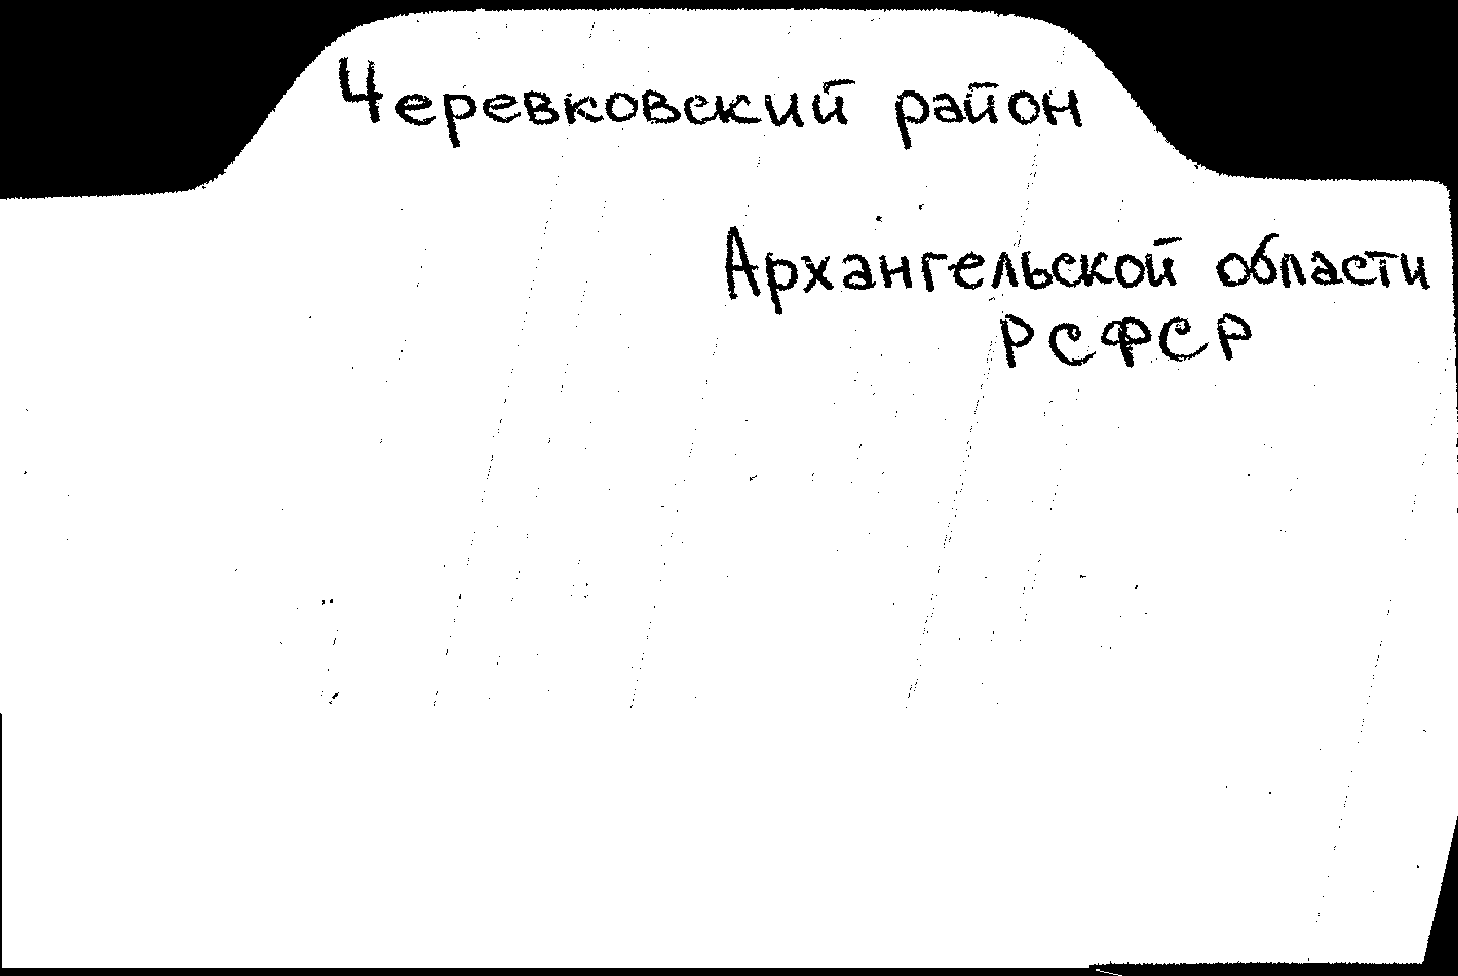 Черевковский район
Архангельской области
РСФСР